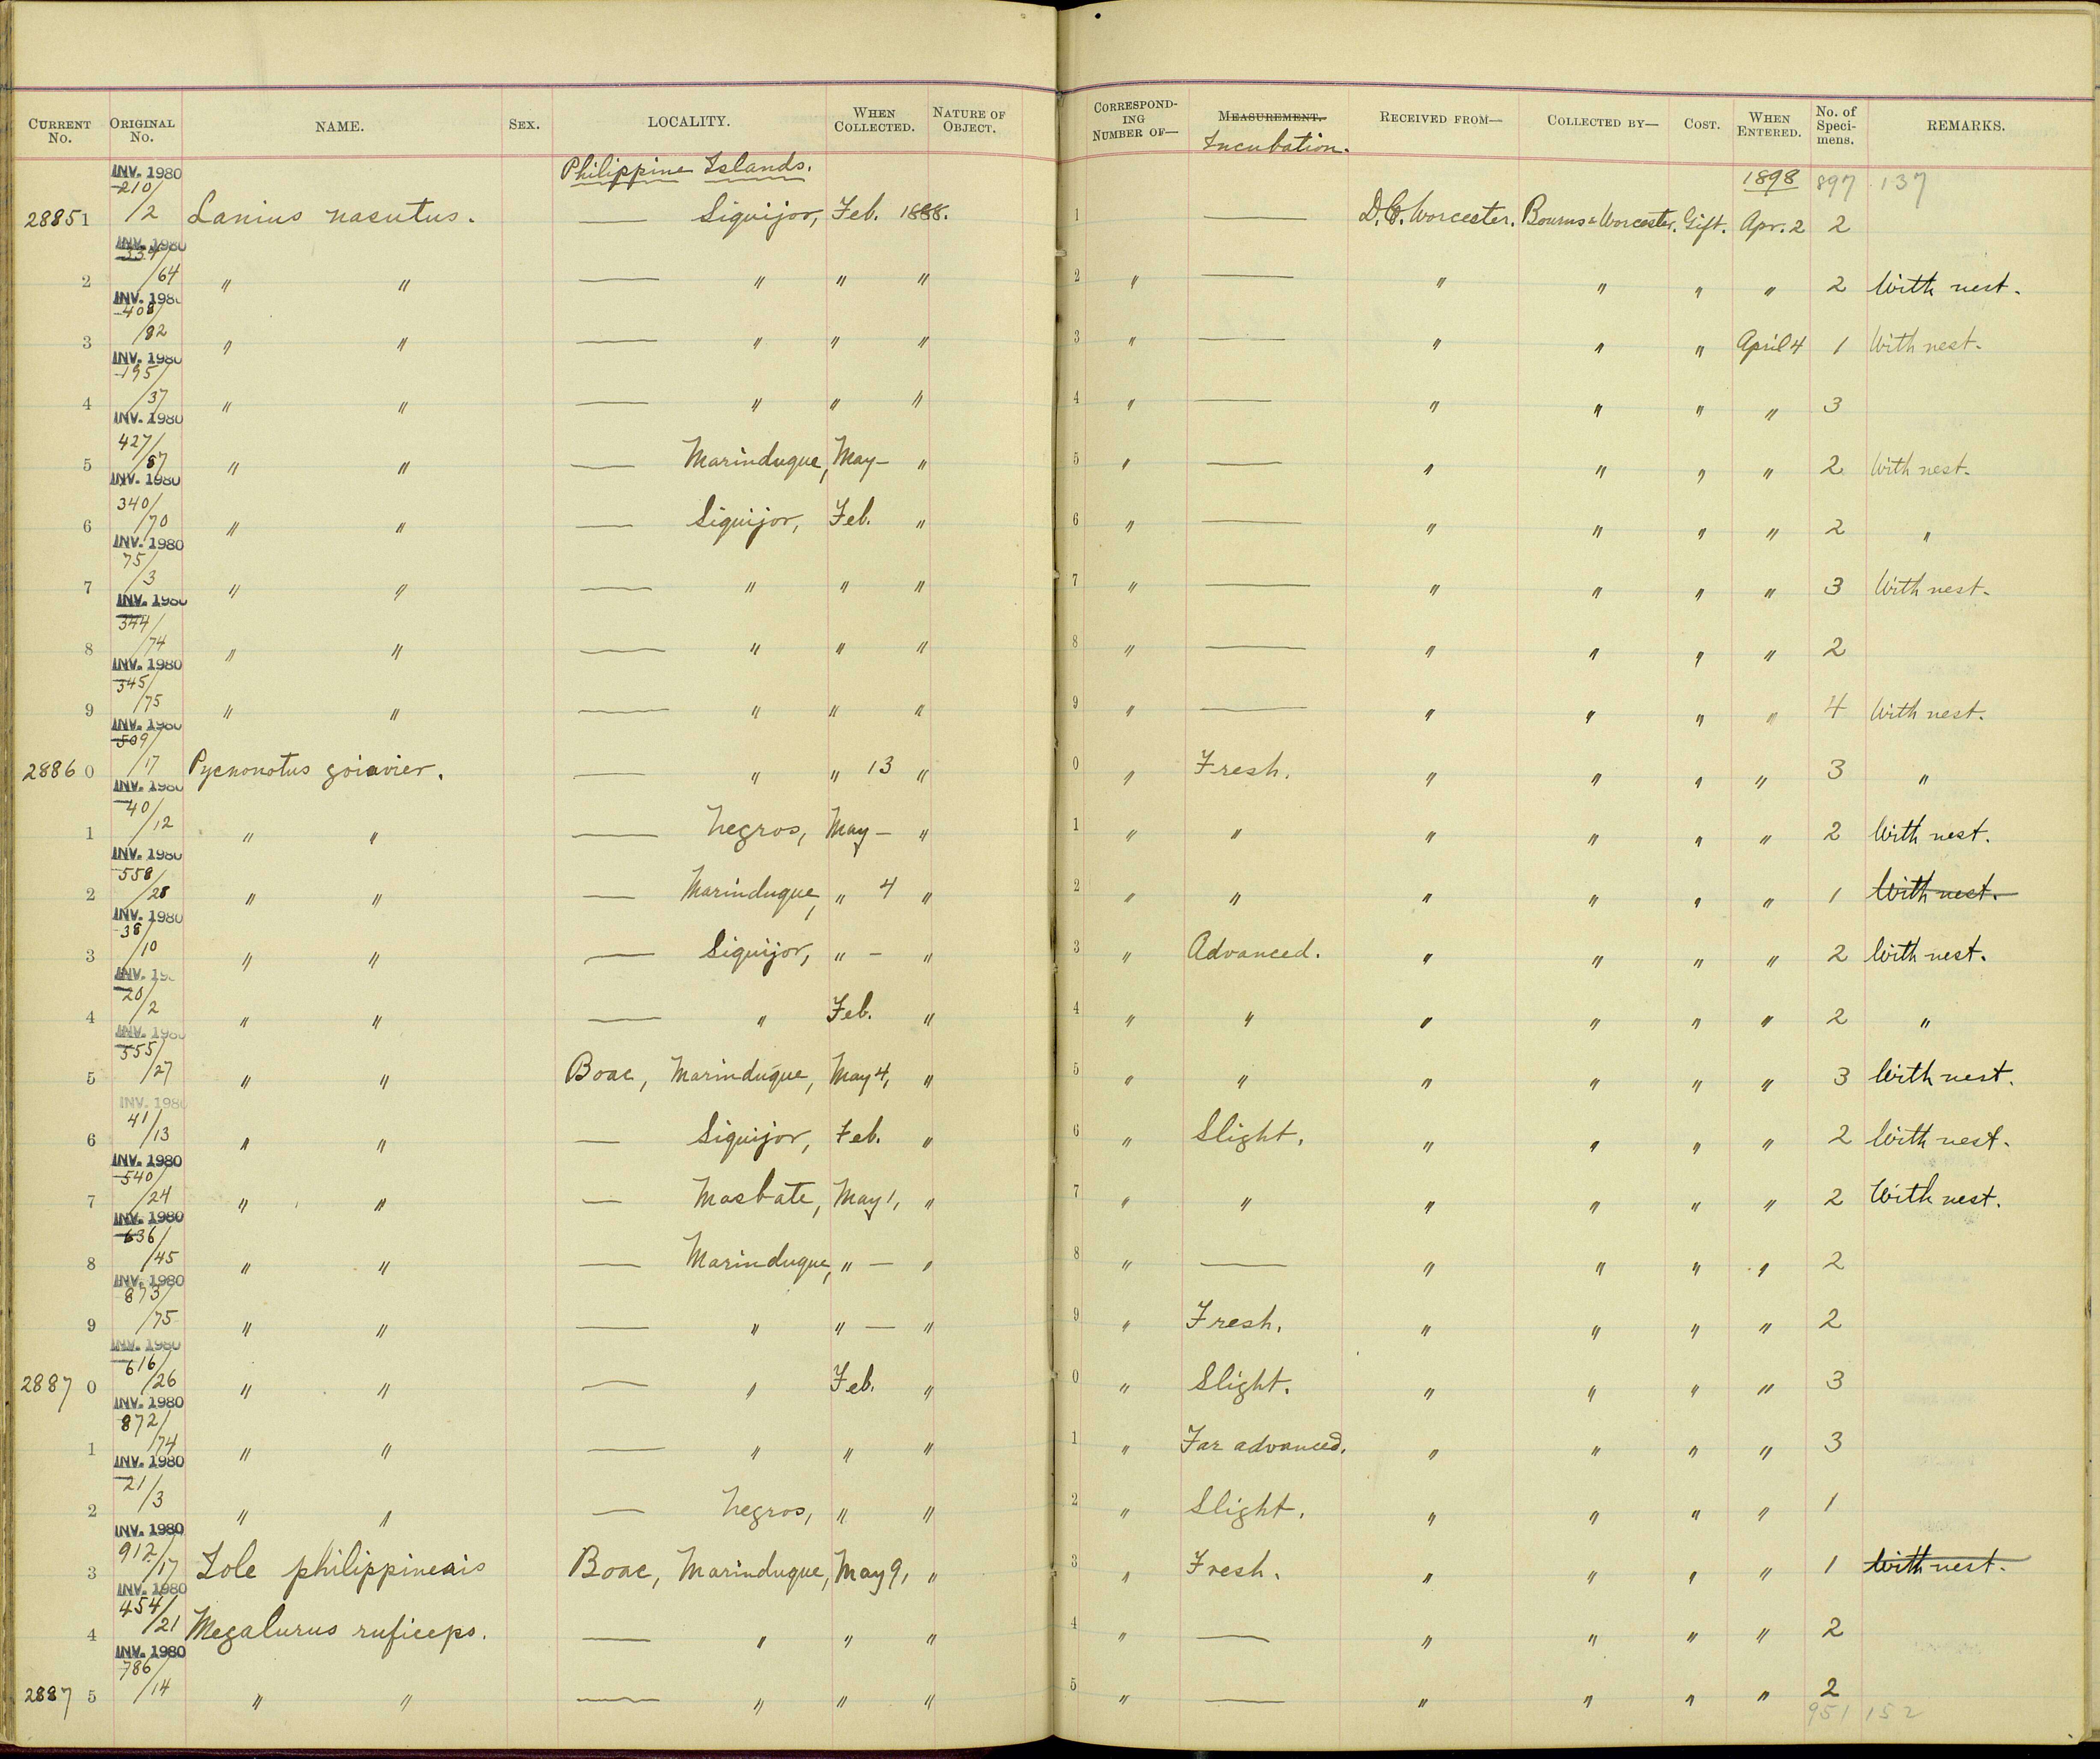 CURRENT No. ORIGINAL No. NAME. SEX. LOCALITY. WHEN COLLECTED. NATURE OF OBJECT. CORRESPONDING NUMBER OF— MEASUREMENT. Incubation. RECEIVED FROM— COLLECTED BY— COST. WHEN ENTERED. No. of Specimens. REMARKS.
INV. 1980 Philippine Islands. 1898 897 137
28851 210/2 Lanius nasutus. — Siquijor, Feb. 1888. 1 — D.C. Worcester. Bourns & Worcester. Gift. Apr. 2 2
INV. 1980
2 334/64 " " — " " " 2 " — " " " " 2 With nest.
INV. 1980
3 408/82 " " — " " " 3 " — " " " April 4 1 With nest.
INV. 1980
4 195/37 " " — " " " 4 " — " " " " 3
INV. 1980
5 427/87 " " — Marinduque, May — " 5 " — " " " " 2 With nest.
INV. 1980
6 340/70 " " — Siquijor, Feb. " 6 " — " " " " 2 "
INV. 1980
7 75/3 " " — " " " 7 " — " " " " 3 With nest.
INV. 1980
8 344/74 " " — " " " 8 " — " " " " 2
INV. 1980
9 345/75 " " — " " " 9 " — " " " " 4 With nest.
INV. 1980
28860 509/17 Pycnonotus goiavier. — " " 13 " 0 " Fresh. " " " " 3 "
INV. 1980
1 40/12 " " — Negros, May — " 1 " " " " " " 2 With nest.
INV. 1980
2 558/28 " " — Marinduque, " 4 " 2 " " " " " " 1 With nest.
INV. 1980
3 38/10 " " — Siquijor, " — " 3 " Advanced. " " " " 2 With nest.
INV. 19
4 20/2 " " — " Feb. " 4 " " " " " " 2 "
INV. 1980
5 555/27 " " Boac, Marinduque, May 4, " 5 " " " " " " 3 With nest.
INV. 1980
6 41/13 " " — Siquijor, Feb. " 6 " Slight. " " " " 2 With nest.
INV. 1980
7 540/24 " " — Masbate, May 1, " 7 " " " " " " 2 With nest.
INV. 1980
8 636/45 " " — Marinduque, " — " 8 " — " " " " 2
INV. 1980
9 873/75 " " — " " — " 9 " Fresh. " " " " 2
INV. 1980
28870 616/26 " " — " Feb. " 0 " Slight. " " " " 3
INV. 1980
1 872/74 " " — " " " 1 " Far advanced. " " " " 3
INV. 1980
2 21/3 " " — Negros, " " 2 " Slight. " " " " 1
INV. 1980
3 912/17 Iole philippinesis Boac, Marinduque, May 9, " 3 " Fresh. " " " " 1 With nest.
INV. 1980
4 454/21 Megalurus ruficeps. — " " " 4 " — " " " " 2
INV. 1980
28875 786/14 " " — " " " 5 " — " " " " 2
951 152